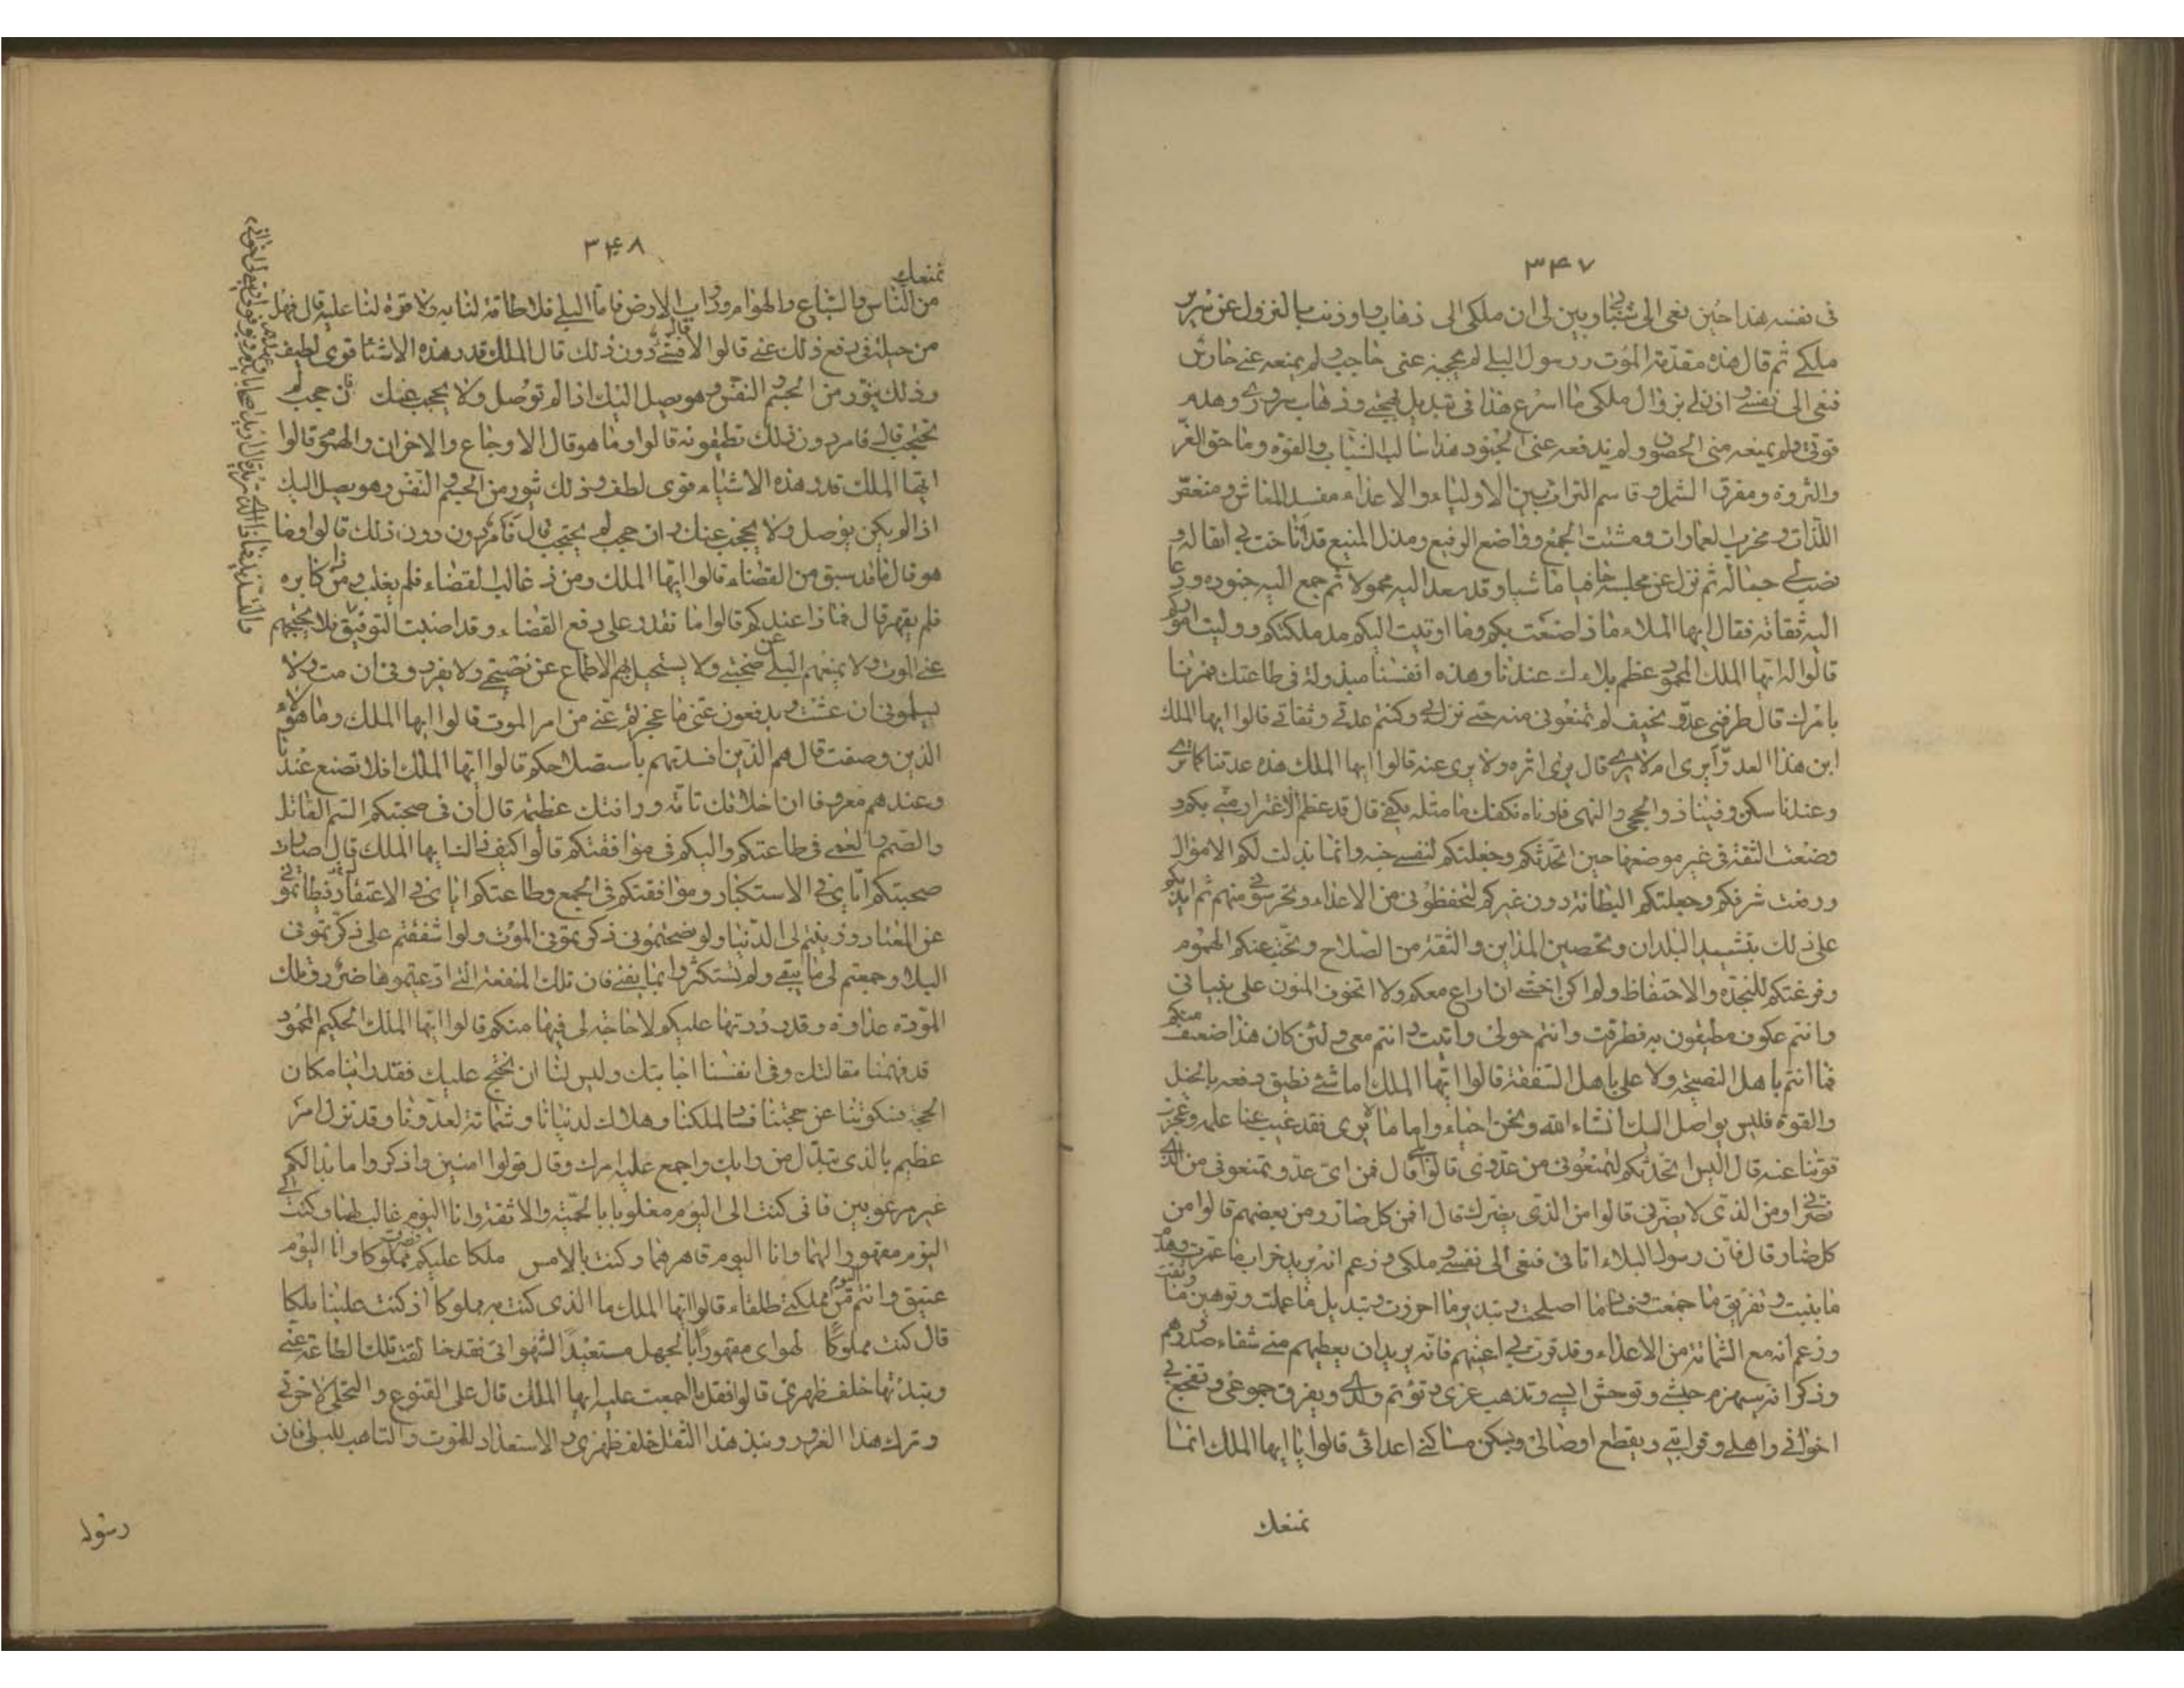 ٣٤٧
فى نفسه هذا حين نعى الى شبابى وبين لى ان ملكى الى ذهاب واوذنت بالنزول عن سرير
ملكے ثم قال هذه مقدمة الموت ورسول البلى لم يحجبه عنى حاجب ولم يمنعه عنى حارس
فنعى الى نفسى واذن لى بزوال ملكى فما اسرع هذا فى تبديل بهجتى وذهاب سرورى وهدم
قوتى ولم يمنعه منى الحصون ولم تدفعه عنى الجنود هذا سالب الشباب والقوة وماحق العز
والثروة ومفرق الشمل وقاسم التراث بين الاولياء والاعداء مفسد المعاش ومنغص
اللذات ومخرب العمارات ومشتت الجمع وواضع الرفيع ومذل المنيع قد اناخت بى اثقاله و
نصب لى حباله ثم نزل عن مجلسه حافيا ماشيا وقد صعد اليه محمولا ثم جمع اليه جنوده ودعا
اليه ثقاته فقال ايها الملاء ماذا صنعت بكم وما اوتيت اليكم مذ ملكتكم ووليت اموركم
قالوا له ايها الملك المحمود عظم بلاءك عندنا وهذه انفسنا مبذولة فى طاعتك فمرنا
بامرك قال طرقنى عدو مخيف لم تمنعونى منه حتى نزل بى وكنتم عدتى وثقاتى قالوا ايها الملك
اين هذا العدو أيرى ام لا يرى قال يرى اثره ولا يرى عينه قالوا ايها الملك هذه عدتنا كما ترى
وعندنا سكن وفينا ذو الحجى والنهى فارناه نكفك ما مثله يكفى قال قد عظم الاغترار منى بكم و
وضعت الثقة فى غير موضعها حين اتخذتكم وجعلتكم لنفسى جنة وانما بذلت لكم الاموال
ورفعت شرفكم وجعلتكم البطانة دون غيركم لتحفظونى من الاعداء وتحرسونى منهم ثم ايدتكم
على ذلك بتشييد البلدان وتحصين المداين والثقة من السلاح ونحيت عنكم الهموم
وفرغتكم للنجدة والاحتفاظ ولم اكن اخشى ان اراع معكم ولا اتخوف المنون على بنيانى
وانتم عكوف مطيفون به فطرقت وانتم حولى واتيت وانتم معى ولئن كان هذا ضعف منكم
فما انتم باهل النصيحة ولا على باهل الشفقة قالوا ايها الملك اما شئ نطيق دفعه بالخيل
والقوة فليس بواصل اليك انشاء الله ونحن احياء واما ما لا يرى فقد غيب عنا علمه وعجزت
قوتنا عنه قال اليس اتخذتكم لتمنعونى من عدوى قالوا بلى قال فمن اى عدو تمنعونى من الذى
يضرنى او من الذى لا يضرنى قالوا من الذى يضرك قال افمن كل ضار او من بعضهم قالوا من
كل ضار قال فان رسول البلاء اتانى فنعى الى نفسى وملكى وزعم انه يريد خراب ما عمرت وهدم
ما بنيت وتفريق ما جمعت وفساد ما اصلحت وتبذير ما احرزت وتبديل ما عملت وتوهين ما وثقت
وزعم انه مع الشماتة من الاعداء وقد قرت بى اعينهم فانه يريد ان يعطيهم منى شفاء صدورهم
وذكر انه سيهزم جيشى ويوحش انسى ويذهب عزى ويؤتم ولدى ويفرق جموعى ويفجع بى
اخوانى واهلى وقرابتى ويقطع اوصالى ويسكن مساكنى اعدائى قالوا يا ايها الملك انما
نمنعك
٣٤٨
نمنعك
من الناس والسباع والهوام ودواب الارض فاما البلى فلا طاقة لنا به ولا قوة لنا عليه قال فهل
من حيلة فى دفع ذلك عنى قالوا لا قال فشئ دون ذلك قال الملك قدر هذه الاشيا قوى لطيف
وذلك يثور من الجسم والنفس وهو يصل اليك اذا لم توصل ولا يحجب عنك فان حجب لم
يحتجب قال فامر دون ذلك تطيقونه قالوا وما هو قال الاوجاع والاحزان والهموم قالوا
ايها الملك قدر هذه الاشياء قوى لطف وذلك يثور من الجسم والنفس وهو يصل اليك
اذا لم يكن يوصل ولا يحجب عنك وان حجب لم يحتجب قال فامر دون دون ذلك قالوا وما
هو قال ما قد سبق من القضاء قالوا ايها الملك ومن ذا غالب القضاء فلم يغلب ومن كابره
فلم يقهر قال فما ذا عندكم قالوا ما نقدر على دفع القضاء وقد اصبت التوفيق
الذين وصفت قال هم الذين افسدتهم باستصلاحكم قالوا ايها الملك افلا تصنع عندنا
وعندهم معروفا فان اخلاقك تامة ورافتك عظيمة قال ان فى صحبتكم السم القاتل
والصمم والعمى فى طاعتكم والبكم فى موافقتكم قالوا كيف ذاك يا ايها الملك قال صارت
صحبتكم اياى فى الاستكثار وموافقتكم فى الجمع وطاعتكم اياى فى الاعتقاد فبطاتمونى
عن المعاد وزينتم لى الدنيا ولو نصحتمونى ذكرتمونى الموت ولو اشفقتم على ذكرتمونى
البلا وجمعتم لى ما يبقى ولم تستكثروا بما يفنى فان تلك المنفعة التى ادعيتموها ضرر وتلك
المودة عداوة وقد رددتها عليكم لا حاجة لى فيها منكم قالوا ايها الملك الحكيم المحمود
قد فهمنا مقالتك وفى انفسنا اجابتك وليس لنا ان نحتج عليك فقد راينا مكان
الحجة فسكوتنا عن حجتنا فساد لملكنا وهلاك لدنيانا وشماتة لعدونا وقد نزل امر
عظيم بالذى تبدل من رايك واجمع عليه امرك وقال قولوا امنين واذكروا ما بدا لكم
غير مرعوبين فانى كنت الى اليوم مغلوبا بالحمية والانفة وانا اليوم غالب لهما وكنت الى
اليوم مقهورا لهما وانا اليوم قاهر لهما وكنت بالامس ملكا عليكم مملوكا وانا اليوم
عتيق وانتم من مملكتى طلقاء قالوا ايها الملك ما الذى كنت به مملوكا اذ كنت علينا ملكا
قال كنت مملوكا لهواى مقهورا بالجهل مستعبدا لشهواتى فقد خالفت تلك الطاعة عنى
ونبذتها خلف ظهرى قالوا فقل ما اجمعت عليه ايها الملك قال على القنوع والتخلى لاخرتى
وترك هذا الغرور ونبذ هذا الثقل خلف ظهرى والاستعداد للموت والتاهب للبلى فان
رسوله